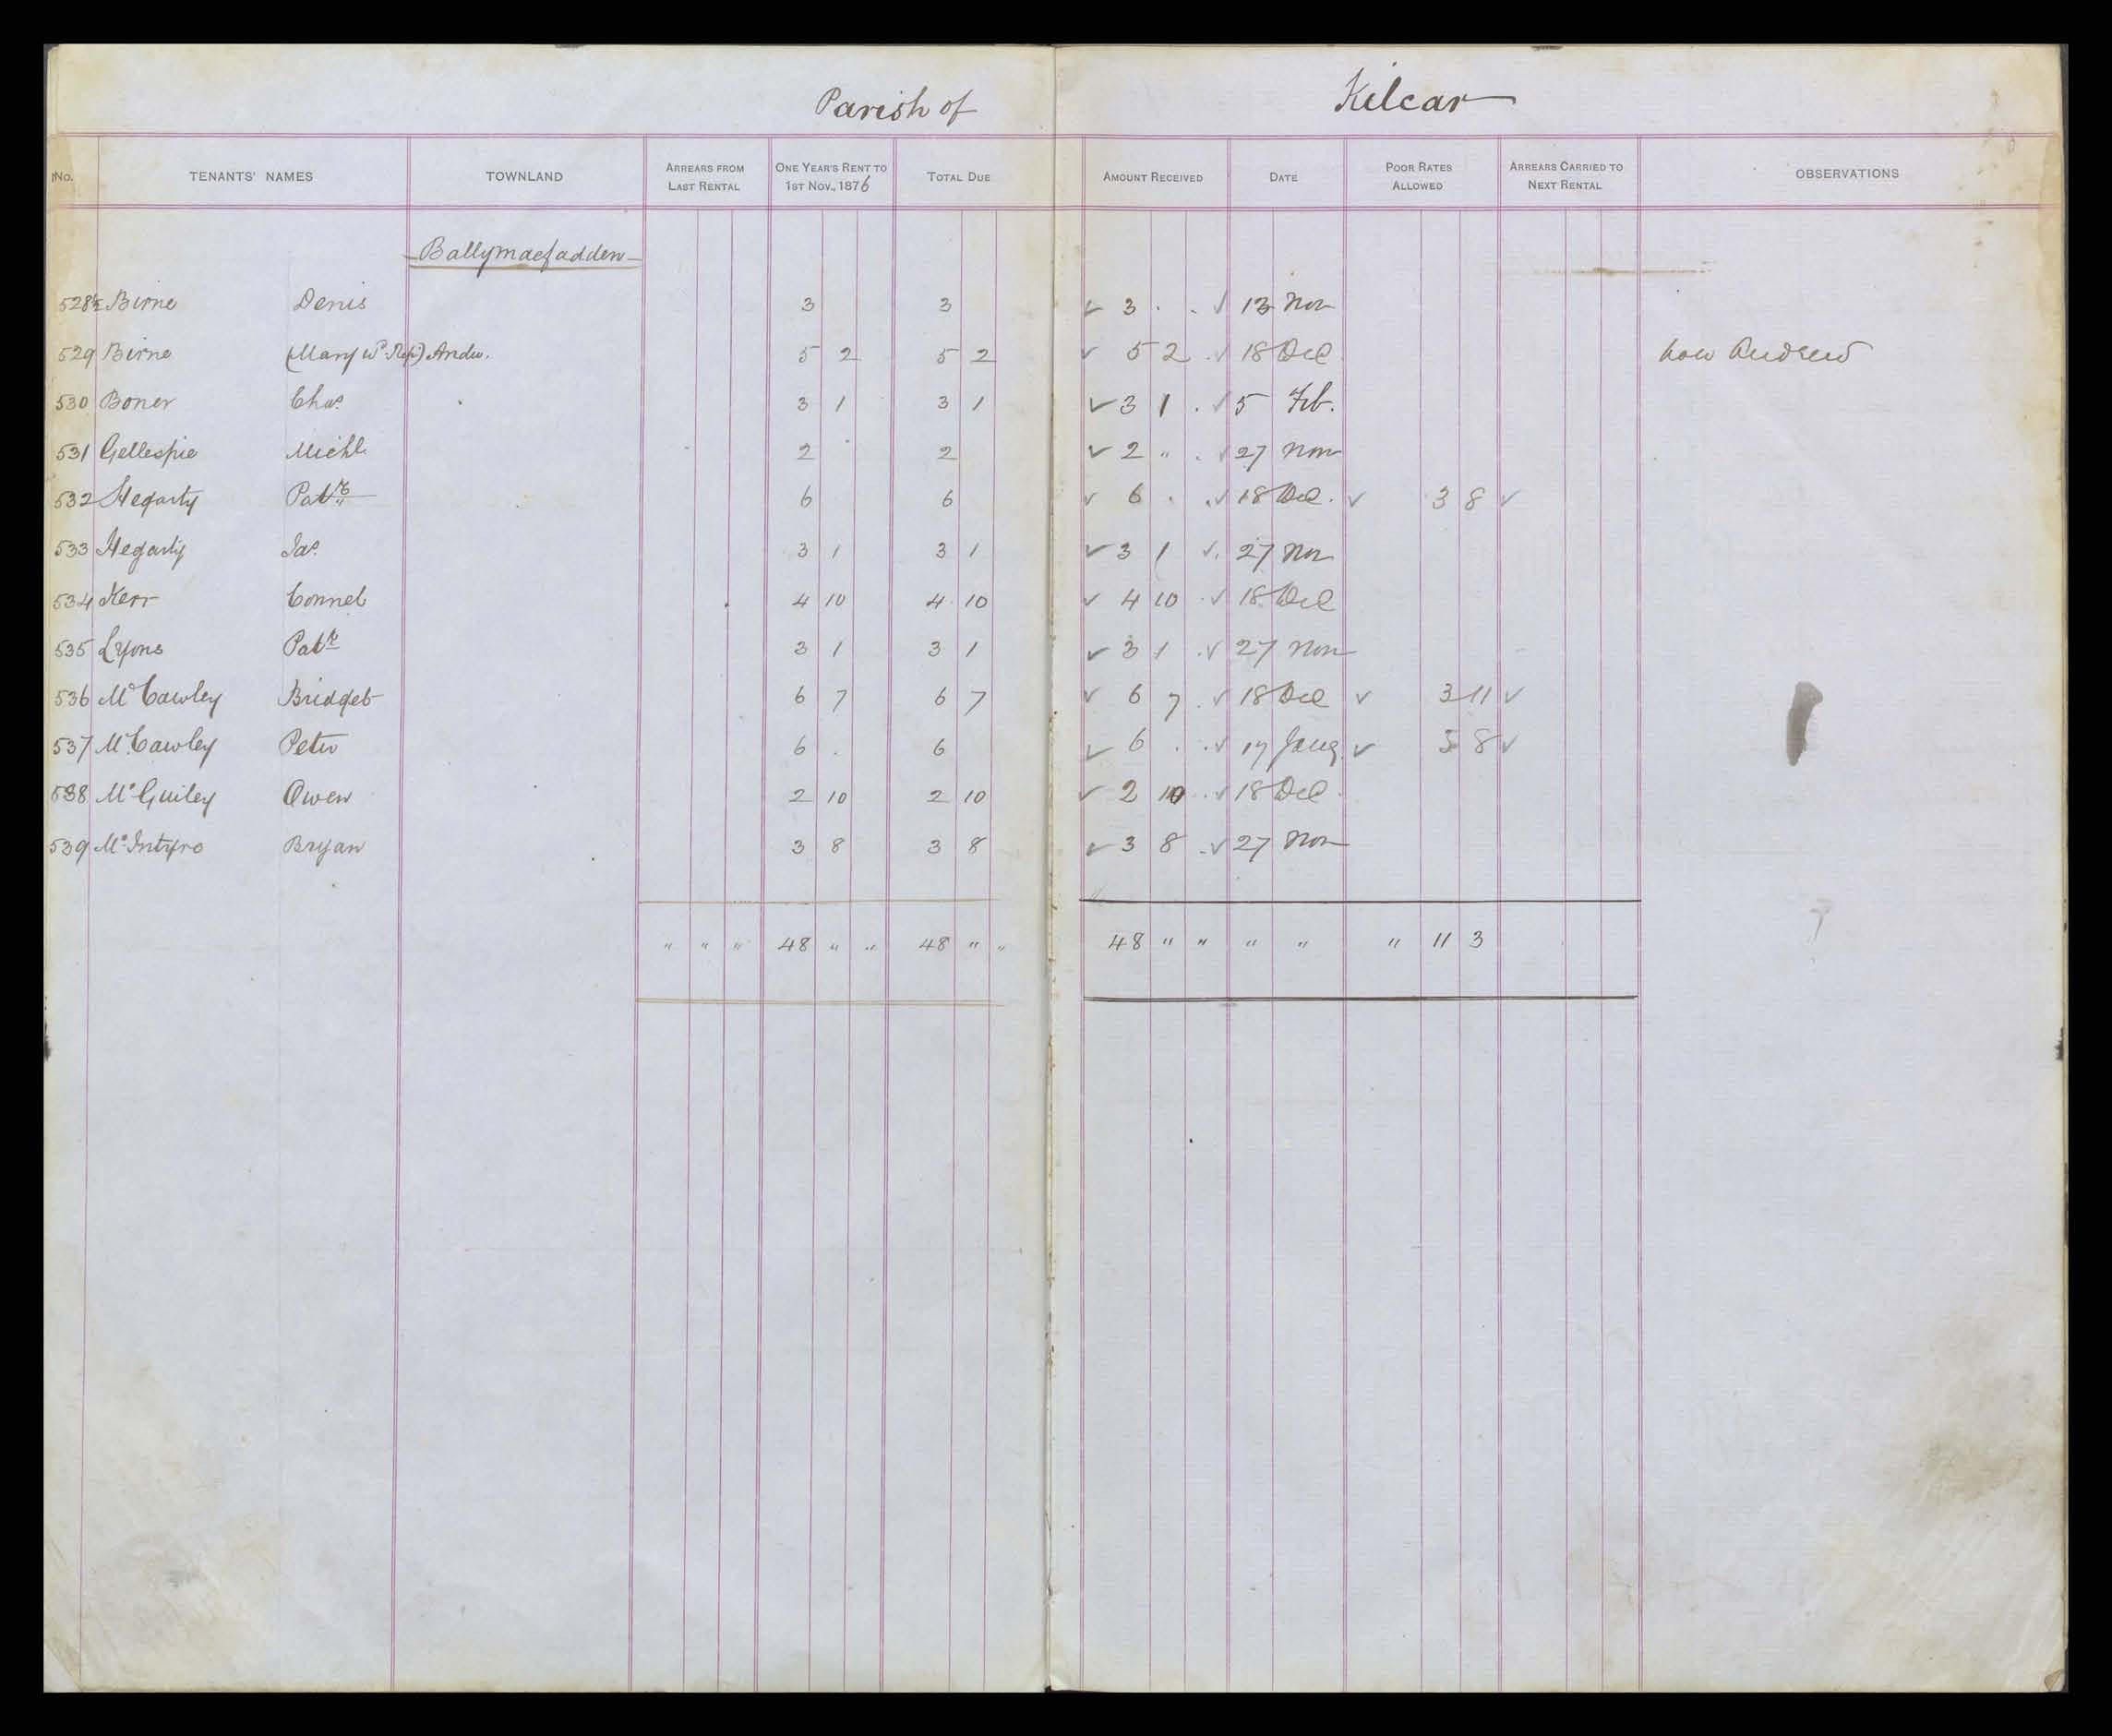 Parish of Kilcar
No. TENANTS' NAMES TOWNLAND ARREARS FROM LAST RENTAL ONE YEAR'S RENT TO 1ST NOV., 1876 TOTAL DUE AMOUNT RECEIVED DATE POOR RATES ALLOWED ARREARS CARRIED TO NEXT RENTAL OBSERVATIONS
Ballymacfadden
528½ Birne Denis 3 3 ✓ 3 . . ✓ 13 Nov
529 Birne (Mary Wd. Rep) Andw. 5 2 5 2 ✓ 5 2 . ✓ 18 Dec now Andrew
530 Boner Chas. 3 1 3 1 ✓ 3 1 . ✓ 5 Feb.
531 Gellespie Michl. 2 2 ✓ 2 " . ✓ 27 Nov
532 Hegarty Patk. 6 6 ✓ 6 . . ✓ 18 Dec. ✓ 3 8 ✓
533 Hegarty Jas. 3 1 3 1 ✓ 3 1 ✓ 27 Nov
534 Kerr Connel 4 10 4 10 ✓ 4 10 . ✓ 18 Dec
535 Lyons Patk. 3 1 3 1 ✓ 3 1 . ✓ 27 Nov
536 McCawley Bridget 6 7 6 7 ✓ 6 7 . ✓ 18 Dec ✓ 3 11 ✓
537 McCawley Peter 6 . 6 ✓ 6 . . ✓ 17 Jany. ✓ 3 8 ✓
538 McGuiley Owen 2 10 2 10 ✓ 2 10 . ✓ 18 Dec
539 McIntyre Bryan 3 8 3 8 ✓ 3 8 . ✓ 27 Nov
" " " 48 " " 48 " " 48 " " " " " 11 3